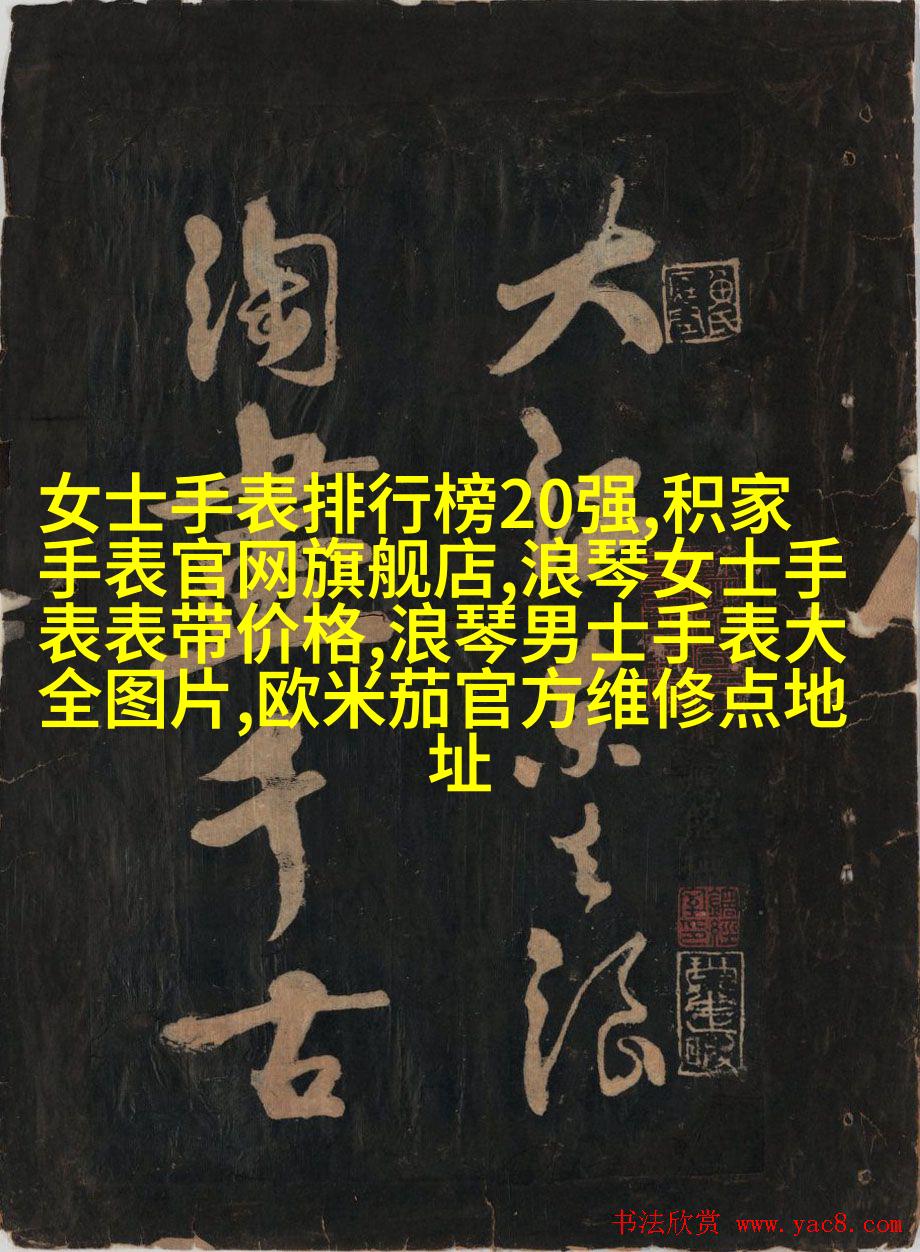 大江東去浪
淘盡千古
女士手表排行榜20强,积家
手表官网旗舰店,浪琴女士手
表表带价格,浪琴男士手表大
全图片,欧米茄官方维修点地
址
书法欣赏 www.yac8.com